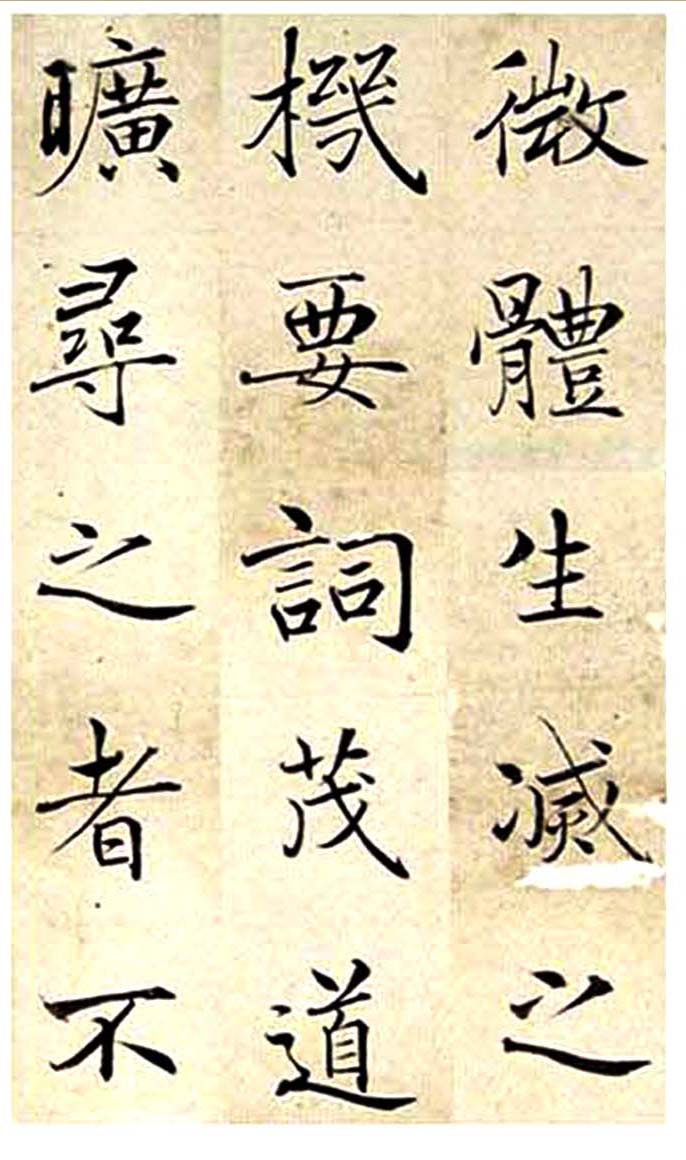 微體生滅之
機要詞茂道
曠尋之者不